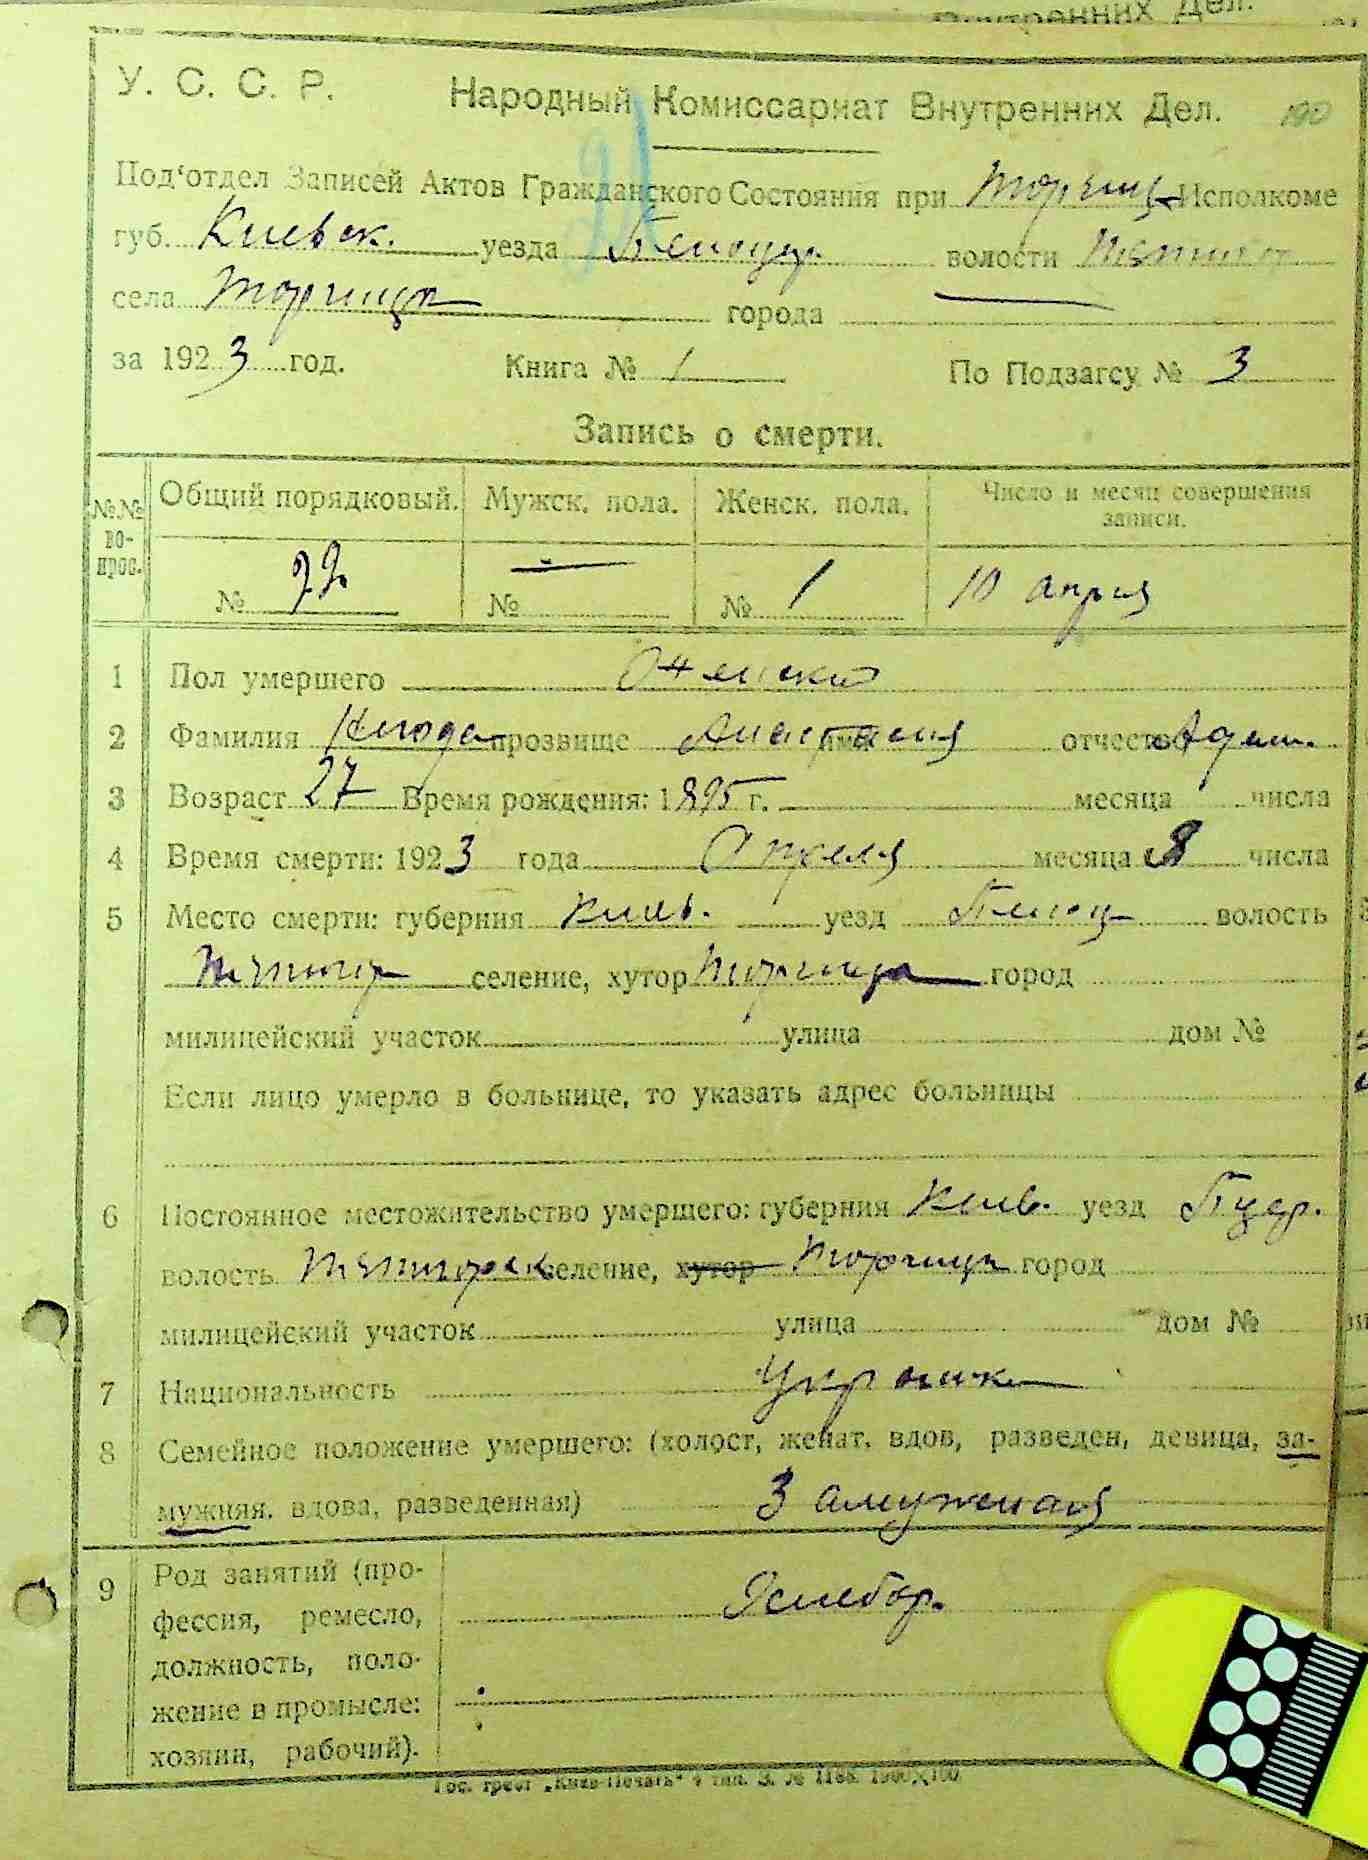 Внутренних Дел.
У. С. С. Р. Народный Комиссариат Внутренних Дел. 190
21
Под‘отдел Записей Актов Гражданского Состояния при Торчиц. Исполкоме
губ. Киевск. уезда Белоцер. волости
села Торчица города
за 1923 год. Книга № 1 По Подзагсу № 3
Запись о смерти.
№№ вопрос. Общий порядковый. Мужск. пола. Женск. пола. Число и месяц совершения
записи.
№ № — № 1 10 апрля
1 Пол умершего Женский
2 Фамилия прозвище Анастасия имя отчество Адам.
3 Возраст 27 Время рождения: 1895 г. месяца числа
4 Время смерти: 1923 года Апреля месяца 8 числа
5 Место смерти: губерния Киев. уезд Белоц волость
селение, хутор Торчица город
милицейский участок улица дом №
Если лицо умерло в больнице, то указать адрес больницы
6 Постоянное местожительство умершего: губерния Киев. уезд Бцер.
волость Тетиевск селение, хутор Торчица город
милицейский участок улица дом №
7 Национальность Украинка
8 Семейное положение умершего: (холост, женат, вдов, разведен, девица, за-
мужняя, вдова, разведенная) Замуженая
9 Род занятий (про-
фессия, ремесло,
должность, поло-
жение в промысле:
хозяин, рабочий).
Хлебор.
Гос. трест „Киев-Печать“